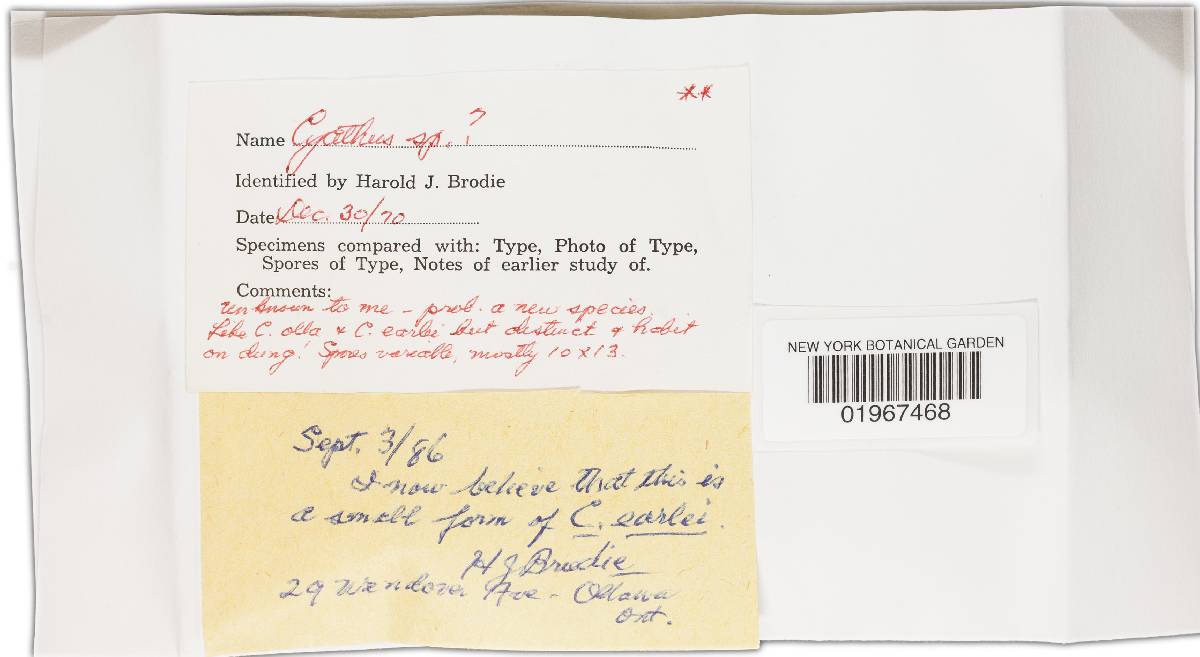 **
Name Cyathus sp.?
Identified by Harold J. Brodie
Date Dec. 30/70
Specimens compared with: Type, Photo of Type,
Spores of Type, Notes of earlier study of.
Comments:
unknown to me - prob. a new species
Like C. olla & C. earlei but distinct & habit
on dung! Spores variable, mostly 10 x 13.
NEW YORK BOTANICAL GARDEN
01967468
Sept. 3/86
I now believe that this is
a small form of C. earlei.
HJ Brodie
29 Wendover Ave - Ottawa
Ont.